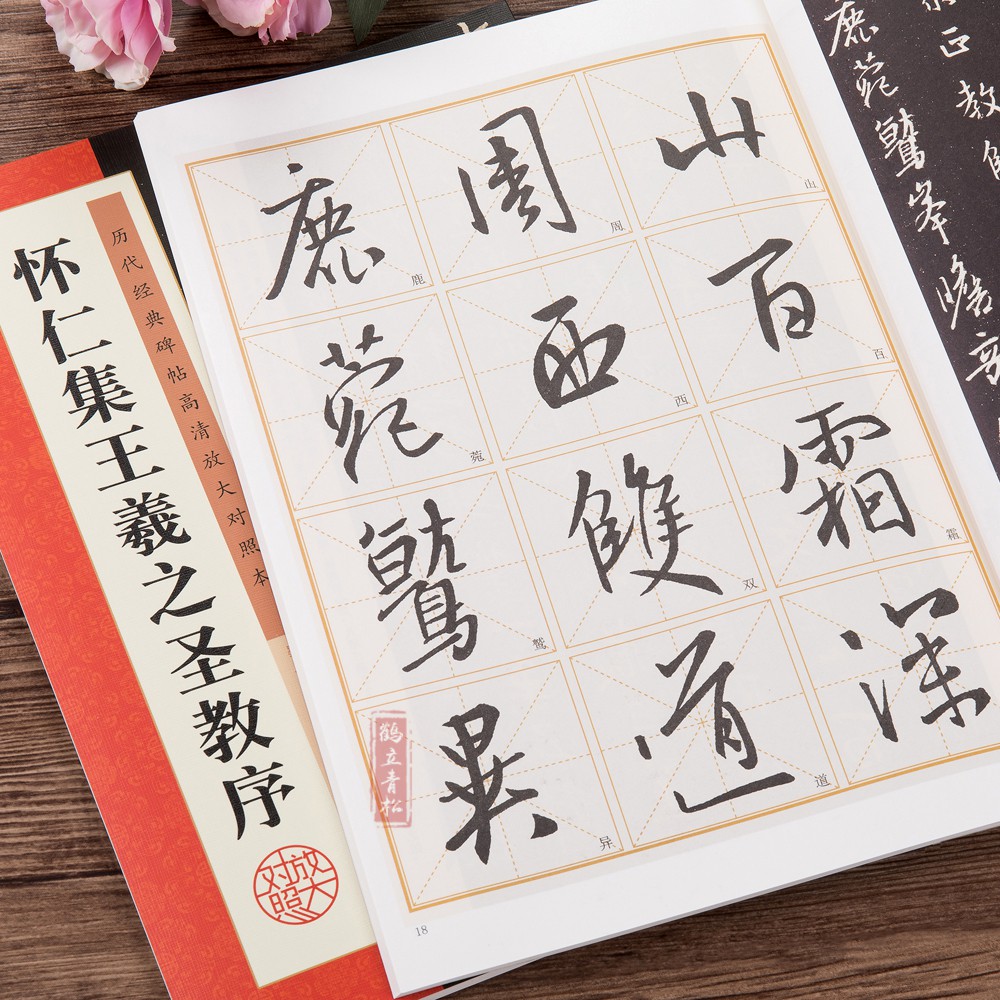 怀仁集王羲之圣教序
历代经典碑帖高清放大对照本
放大对照
山百霜深
山
百
霜
周西雙道
周
西
双
道
鹿菀鷲異
鹿
菀
鹫
异
18
鹤立青松
正教
鹿菀鷲峯瞻奇